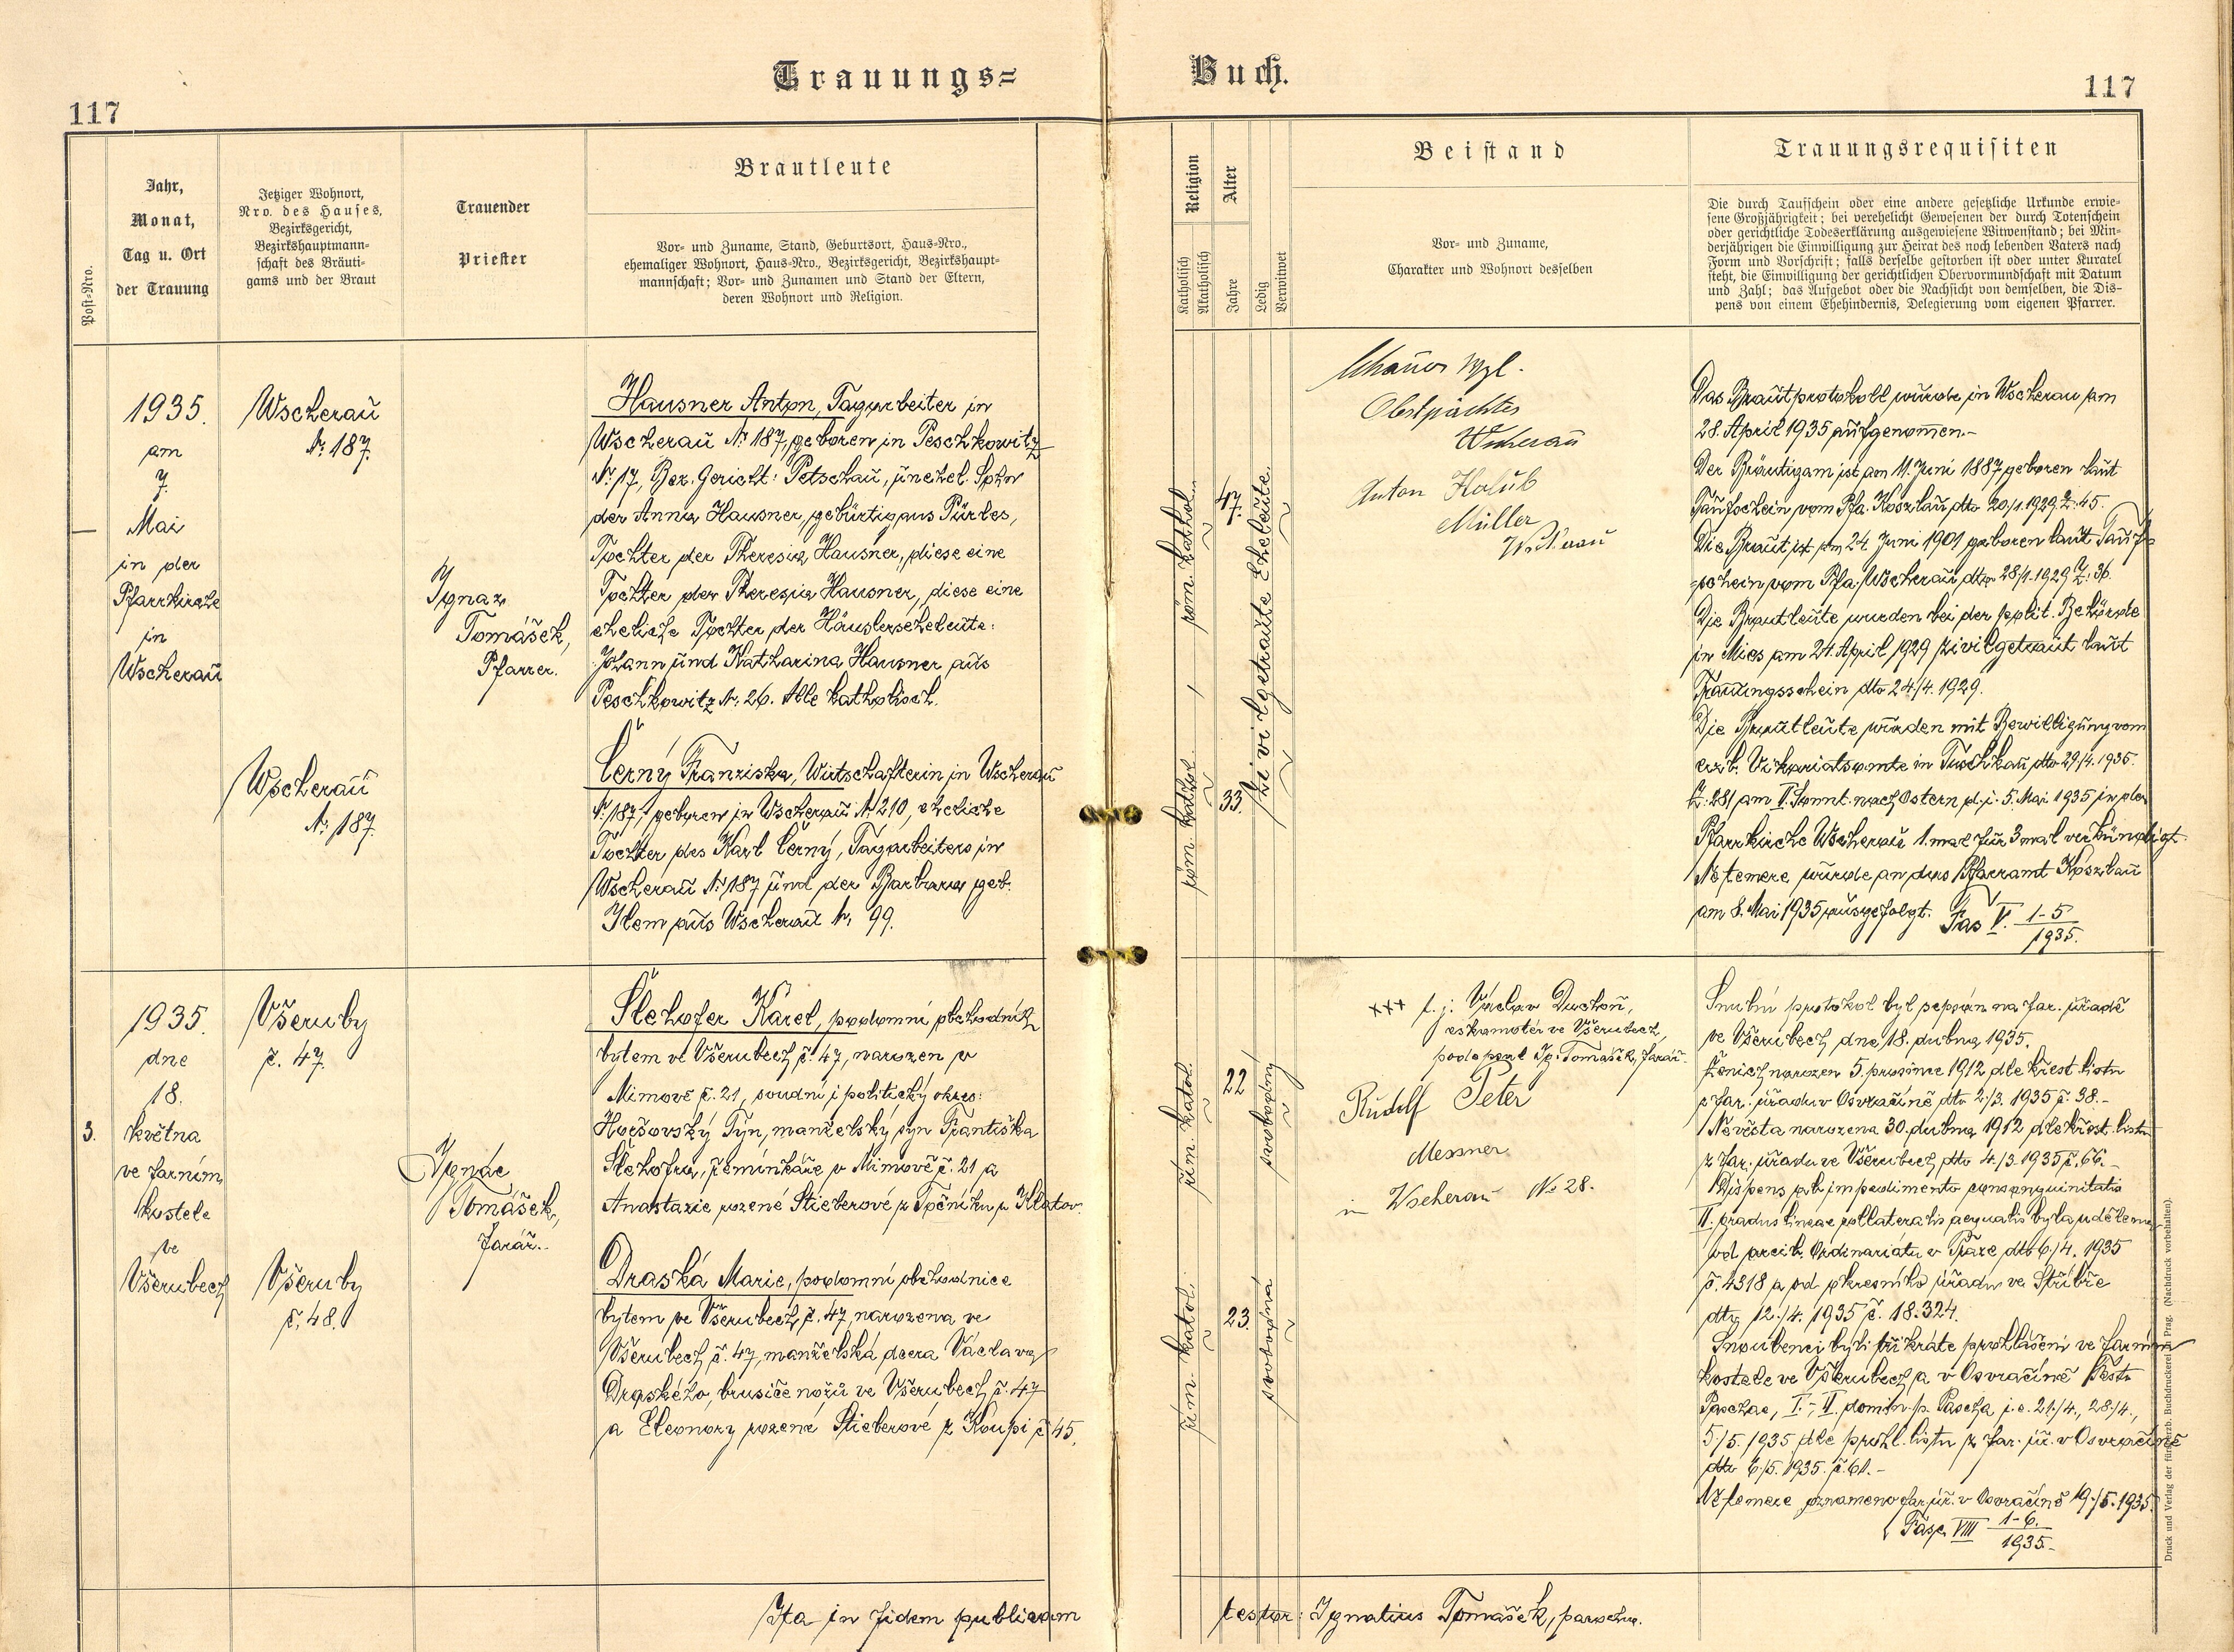 Trauungs=
Buch.
117
117
Post-Nro.
Jahr,
Monat,
Tag u. Ort
der Trauung
Jetziger Wohnort,
Nro. des Hauses,
Bezirksgericht,
Bezirkshauptmann-
schaft des Bräuti-
gams und der Braut
Trauender
Priester
Brautleute
Vor- und Zuname, Stand, Geburtsort, Haus-Nro.,
ehemaliger Wohnort, Haus-Nro., Bezirksgericht, Bezirkshaupt-
mannschaft; Vor- und Zunamen und Stand der Eltern,
deren Wohnort und Religion.
Religion
Katholisch
Akatholisch
Alter
Jahre
Ledig
Verwitwet
Beistand
Vor- und Zuname,
Charakter und Wohnort desselben
Trauungsrequisiten
Die durch Taufschein oder eine andere gesetzliche Urkunde erwie-
sene Großjährigkeit; bei verehelicht Gewesenen der durch Totenschein
oder gerichtliche Todeserklärung ausgewiesene Witwenstand; bei Min-
derjährigen die Einwilligung zur Heirat des noch lebenden Vaters nach
Form und Vorschrift; falls derselbe gestorben ist oder unter Kuratel
steht, die Einwilligung der gerichtlichen Obervormundschaft mit Datum
und Zahl; das Aufgebot oder die Nachsicht von demselben, die Dis-
pens von einem Ehehindernis, Delegierung vom eigenen Pfarrer.
1935.
am
7.
Mai
in der
Pfarrkirche
in
Wscherau
Wscherau
N: 187.
Wscherau
N: 187.
Ignaz
Tomášek,
Pfarrer.
Hausner Anton, Tagarbeiter in
Wscherau N: 187, geboren in Peschkowitz
N: 17, Bez. Gericht: Petschau, unehel. Sohn
der Anna Hausner, gebürtig aus Pürles,
Tochter der Theresia Hausner, diese eine
Tochter der Theresia Hausner, diese eine
eheliche Tochter der Häuslerseheleute:
Johann und Katharina Hausner aus
Peschkowitz N: 26. Alle katholisch.
Černý Franziska, Wirtschafterin in Wscherau
N: 187, geboren in Wscherau N: 210, eheliche
Tochter des Karl Černý, Tagarbeiters in
Wscherau N: 187 und der Barbara geb.
Ilem aus Wscherau N: 99.
röm. kathol.
röm. kathol.
47.
33.
zivilgetraute Eheleute.
Wzl.
Obstpächter
Wscherau
Anton Holub
Müller
Wscherau
Das Brautprotokoll wurde in Wscherau am
28. April 1935 aufgenommen.-
Der Bräutigam ist am 11. Juni 1887 geboren laut
Taufschein vom Pfa. Koszlau dto 20/1. 1929 Z: 45.
Die Braut ist am 24 Juni 1901 geboren laut Tauf-
=schein vom Pfa. Wscherau, dto 28/1. 1929 Z: 36.
Die Brautleute wurden bei der polit. Behörde
in Mies am 24. April 1929 zivilgetraut laut
Trauungsschein dto 24/4. 1929.
Die Brautleute wurden mit Bewilligung vom
erzb. Vikariatsamte in Tuschkau dto 29/4. 1935.
Z: 281 am II. Sonnt. nach Ostern d. i. 5. Mai 1935 in der
Pfarrkirche Wscherau 1. mal für 3 mal verkündigt.
Ne temere wurde an das Pfarramt Koszlau
am 8. Mai 1935 ausgefolgt. Fas V. 1-5
1935.
3.
1935.
dne
18.
května
ve farním
kostele
ve
Všerubech
Všeruby
č. 47.
Všeruby
č. 48.
Ignác
Tomášek,
farář.-
Šlehofer Karel, podomní obchodník
bytem ve Všerubech č. 47, narozen v
Mimově č. 21, soudní i politický okres:
Horšovský Týn, manželský syn Františka
Šlehofra, řemínkáře v Mimově č. 21 a
Anastazie rozené Stieberové z Točníku u Klatov.
Draská Marie, podomní obchodnice
bytem ve Všerubech č. 47, narozena ve
Všerubech č. 47, manželská dcera Václava
Draského, brusiče nožů ve Všerubech č. 47
a Eleonory rozené Stieberové z Koupi č 45.
řím. katol.
řím. katol.
22
23.
svobodný
svobodná
xxx t. j. Václav Duchoň,
eskamotér ve Všerubech,
podepsal Ig. Tomášek, farář.
Rudolf Peter
Messner
in Wscherau No 28.
Snubní protokol byl sepsán na far. úřadě
ve Všerubech dne 18. dubna 1935.
Ženich narozen 5. prosince 1912 dle křest. listu
z far. úřadu v Osvračíně dto 2./3. 1935 č. 38.-
Nevěsta narozena 30. dubna 1912 dle křest. listu
z far. úřadu ve Všerubech dto 4./3. 1935 č. 66.-
Dispens ab impedimento consanguinitatis
II. gradus lineae collateralis aequalis byla udělena
od arcib. Ordinariátu v Praze, dto 6./4. 1935
č. 4318 a od okresního úřadu ve Stříbře
dto 12./4. 1935 č. 18.324.
Snoubenci byli třikráte prohlášeni ve farním
kostele ve Všerubech a v Osvračíně Festo
Paschae, I.-, II. domin. p. Pascha j. e. 21./4., 28./4.,
5/5. 1935 dle prohl. listu z far. úř. v Osvračíně
dto 6./5. 1935. č. 61.-
Ne temere oznámeno far. úř. v Osvračíně 19./5. 1935.
Fasc. VIII 1-6.
1935.-
Ita in fidem publicam
testor: Ignatius Tomášek, parochus.
Druck und Verlag der fürsterzb. Buchdruckerei Prag. (Nachdruck vorbehalten).